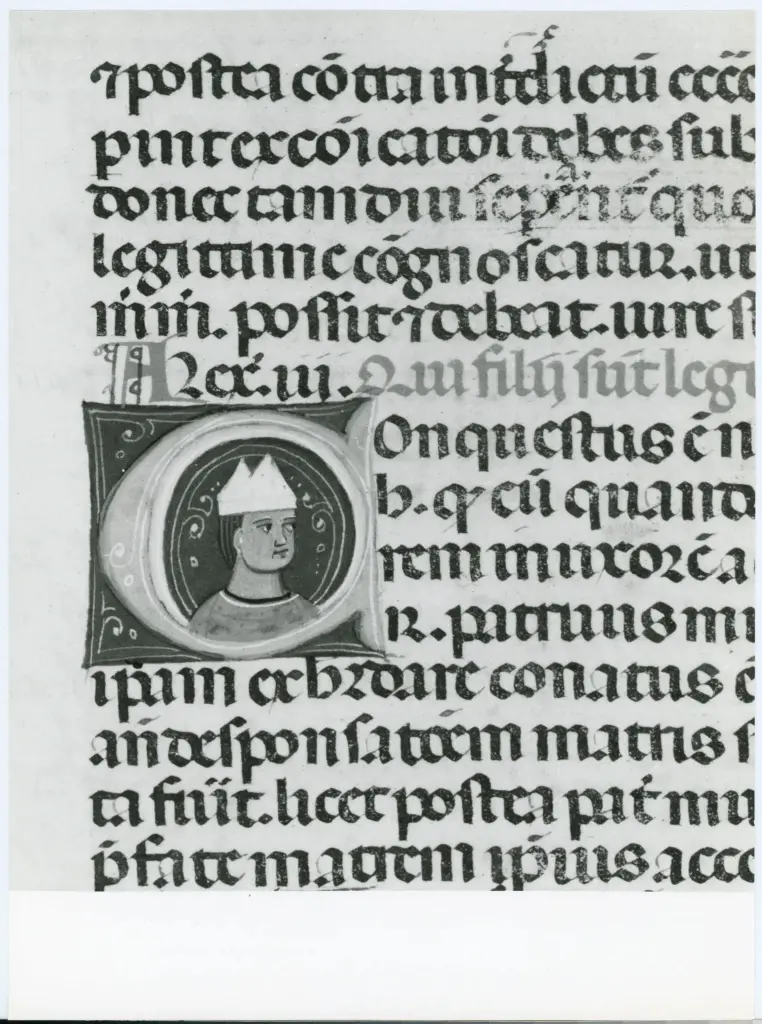 ⁊ postea cōtra inťdictū
pinť excōicatōi debes sub
donec tamdiu sepēnť quo
legittime cōgnoscatur. ut
possit ⁊ debeat. iure
Alex̄. iii. Qui filij sūt legi
COnquestus ē n
b. cū quand
rem in uxorē a
R. patruus m
ip̄am exh̄dare conatus ē
an̄ desponsatōem matris s
ta fūit. licet postea pať
p̄fate matrem ip̄ius acce